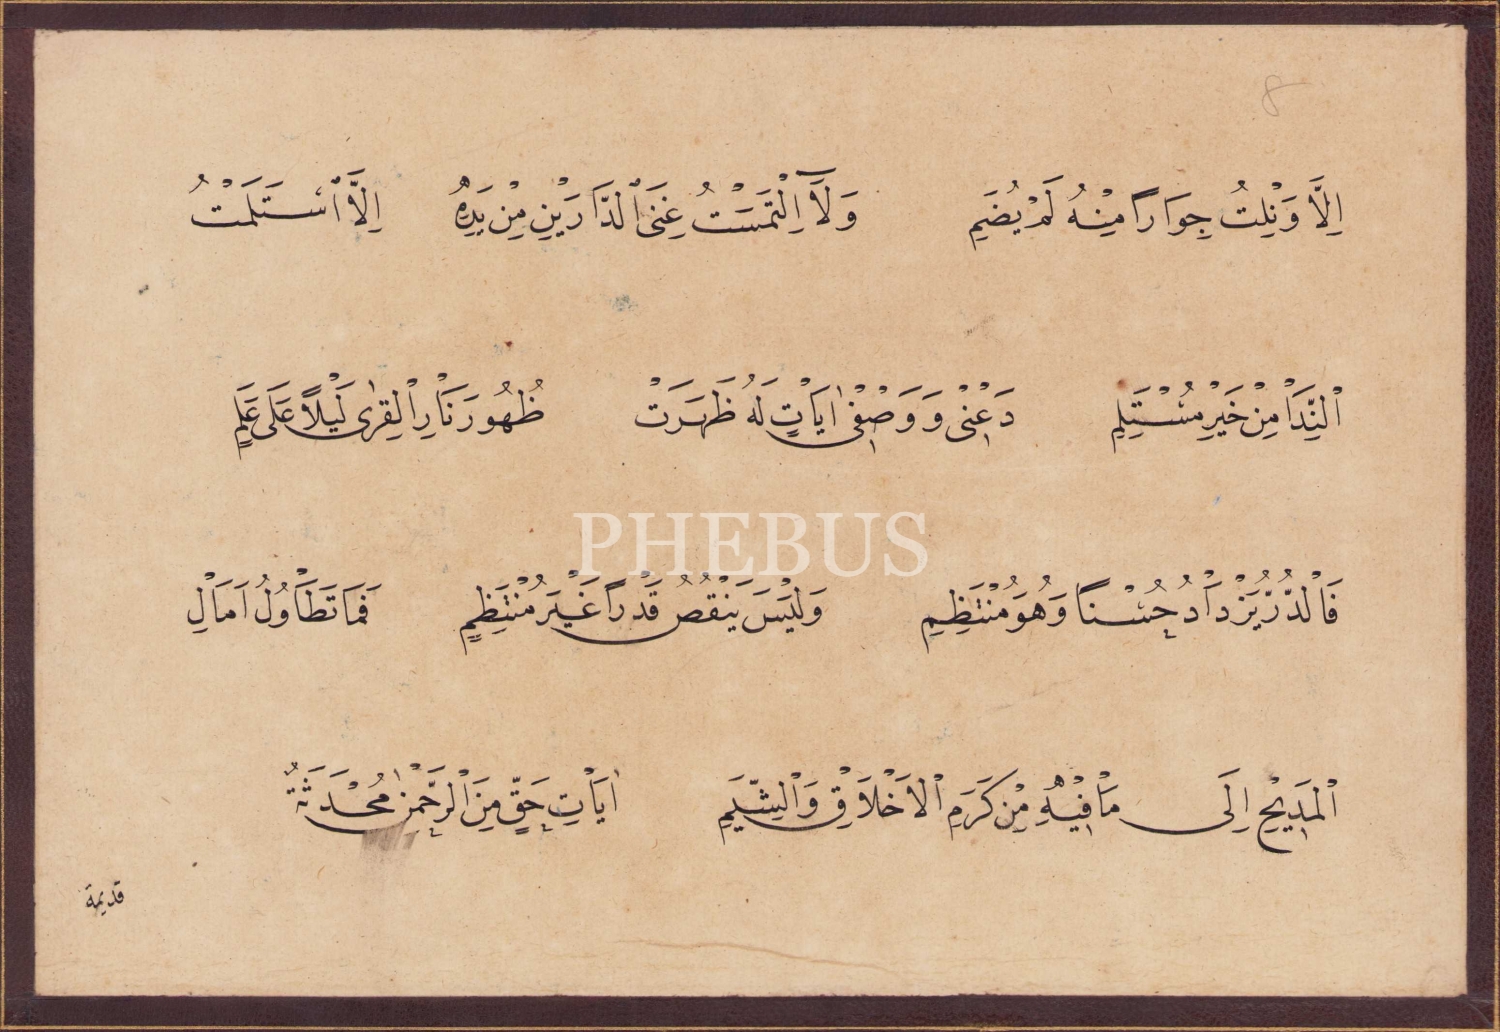 8
اِلَّا وَنِلْتُ جِوَارًا مِنْهُ لَمْ يُضَمِ وَلَا الْتَمَسْتُ غِنَى الدَّارَيْنِ مِنْ يَدِهِ اِلَّا اسْتَلَمْتُ
الْنِّدَا مِنْ خَيْرِ مُسْتَلَمِ دَعْنِى وَوَصْفِى اٰيَاتٍ لَهُ ظَهَرَتْ ظُهُورَ نَارِ الْقِرٰى لَيْلًا عَلٰى عَلَمِ
فَالْدُّرُّ يَزْدَادُ حُسْنًا وَهُوَ مُنْتَظِمِ وَلَيْسَ يَنْقُصُ قَدْرًا غَيْرَ مُنْتَظِمٍ فَمَا تَطَاوُلُ اٰمَالِ
الْمَدِيْحِ اِلَى مَا فِيْهِ مِنْ كَرَمِ الْاَخْلَاقِ وَالْشِّيَمِ اٰيَاتِ حَقٍّ مِنَ الْرَّحْمٰنِ مُحْدَثَةٌ
قديمة
PHEBUS